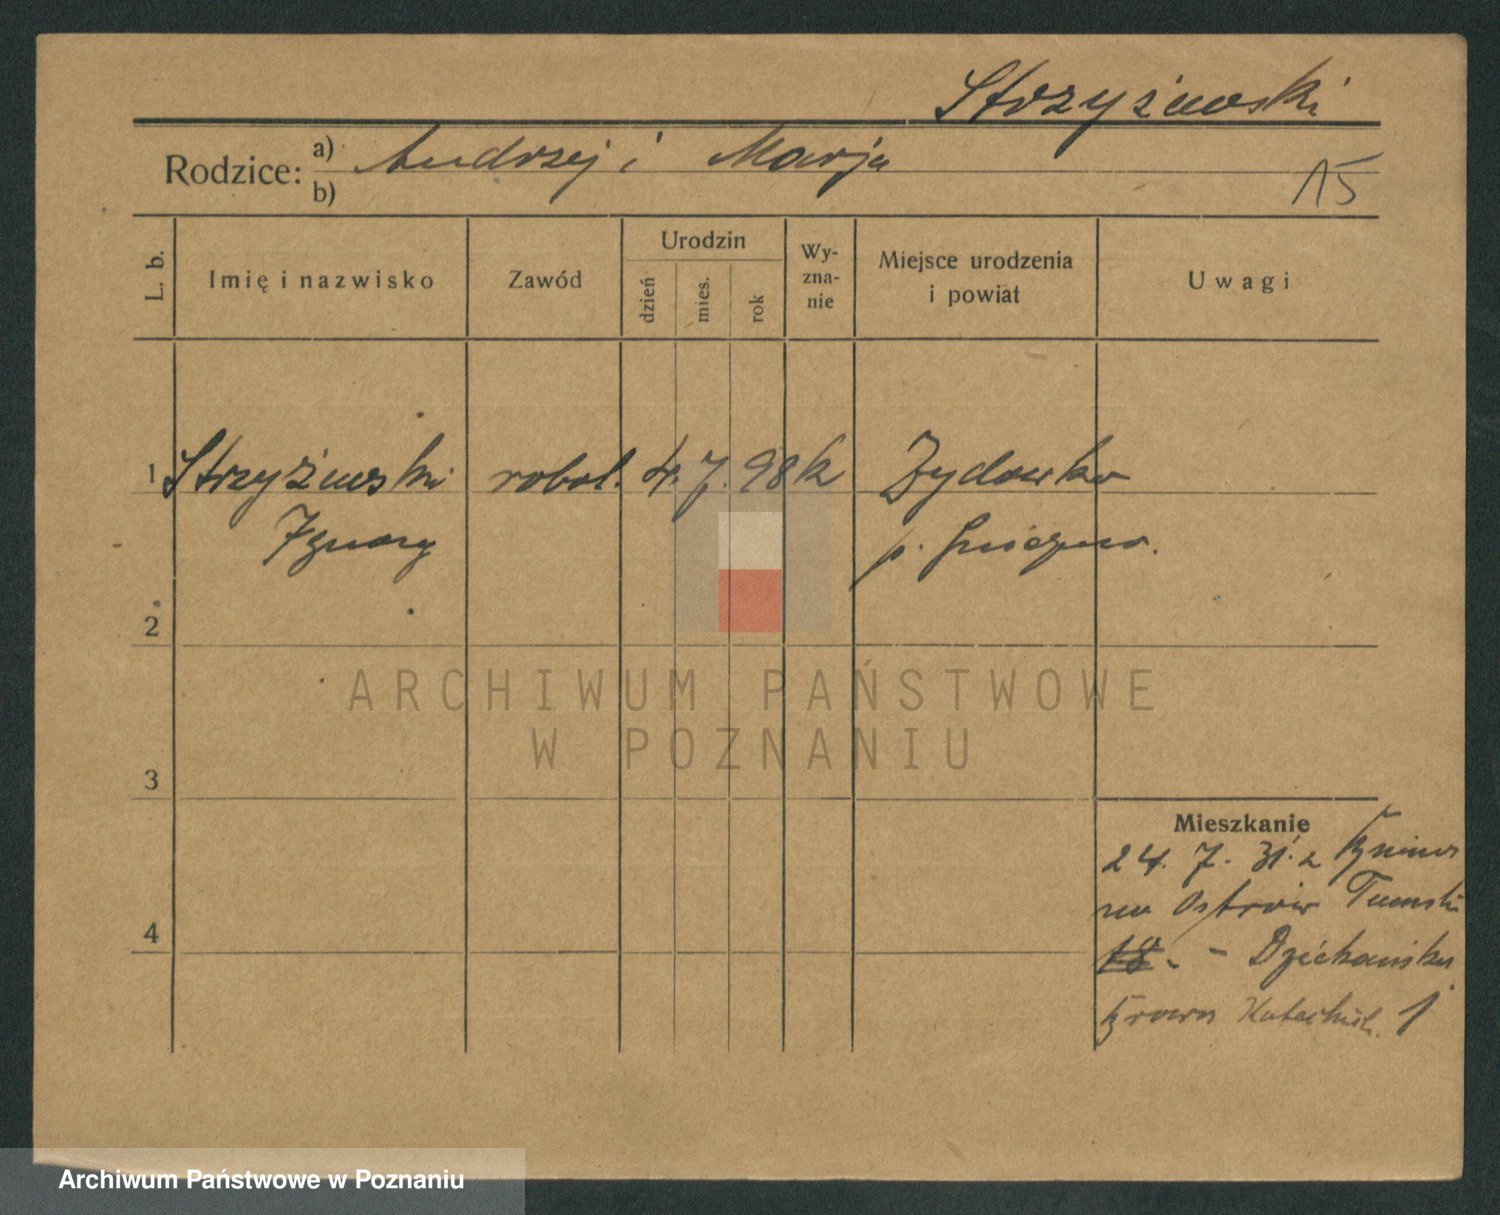 Strzyżewski
Rodzice: a) Andrzej i Marja
b)
15
L. b.
Imię i nazwisko
Zawód
Urodzin
dzień
mies.
rok
Wy-
zna-
nie
Miejsce urodzenia
i powiat
Uwagi
1 Strzyżewski robot. 4. 7. 98 k Żydowko
Ignacy p. Gniezno.
2
ARCHIWUM PAŃSTWOWE
W POZNANIU
3
Mieszkanie
24. 7. 31. z
na Ostrów Tumski
4
18. - Dziekańska
1
Archiwum Państwowe w Poznaniu